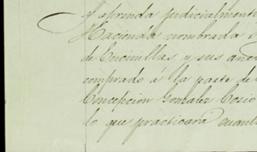 y aprenda judicialmente
Hacienda nombrada
de Encinillas y sus
comprado á la parte de
Concepcion Gonzalez Cosio
lo que practicará cuant